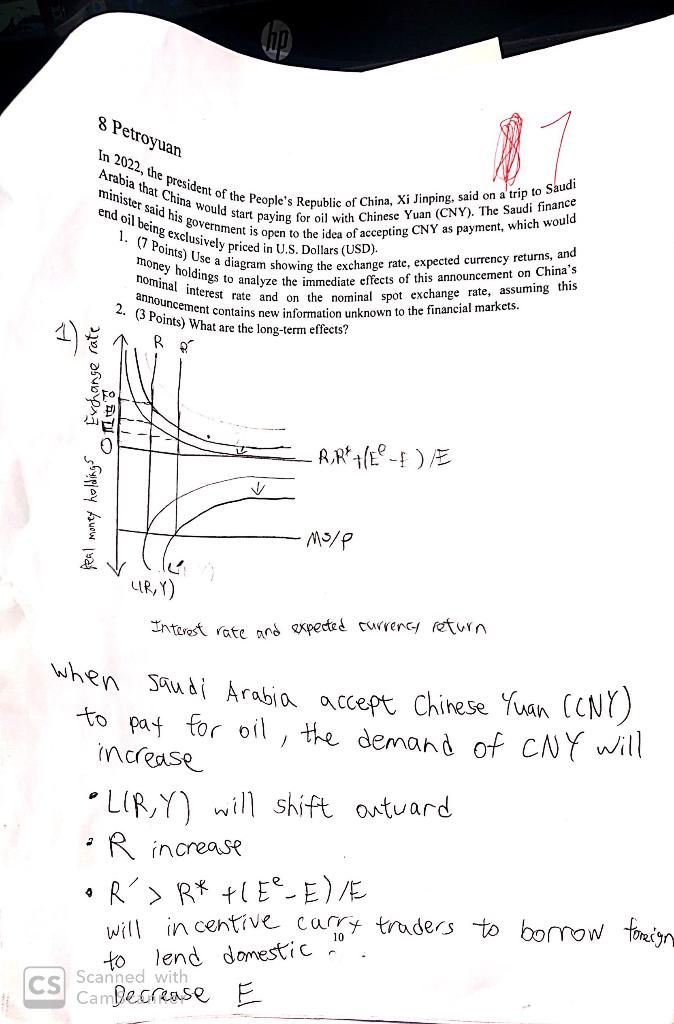 hp
8 Petroyuan
7
In 2022, the president of the People's Republic of China, Xi Jinping, said on a trip to Saudi
Arabia that China would start paying for oil with Chinese Yuan (CNY). The Saudi finance
minister said his government is open to the idea of accepting CNY as payment, which would
end oil being exclusively priced in U.S. Dollars (USD).
1. (7 Points) Use a diagram showing the exchange rate, expected currency returns, and
money holdings to analyze the immediate effects of this announcement on China's
nominal interest rate and on the nominal spot exchange rate, assuming this
announcement contains new information unknown to the financial markets.
2. (3 Points) What are the long-term effects?
1)
Exchange rate
R R´
0
R,R*+(Eᵉ-E)/E
Real money holdings
MS/P
L(R,Y)
L´
Interest rate and expected currency return
When Saudi Arabia accept Chinese Yuan (CNY)
to pay for oil, the demand of CNY will
increase
• L(R,Y) will shift outward
• R increase
• R´ > R* +(Eᵉ-E)/E
will incentive carry traders to borrow foreign
to lend domestic
10
Decrease E
CS Scanned with
CamScanner